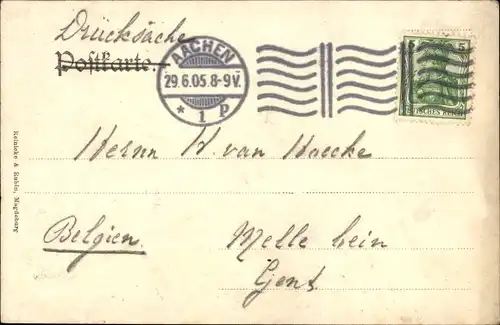 Drücksache
Postkarte.
AACHEN
29.6.05.8-9V.
* 1 P
5 5
Herrn H. van Haecke
Belgien.
Melle bein
Gent
Reinicke & Rubin, Magdeburg